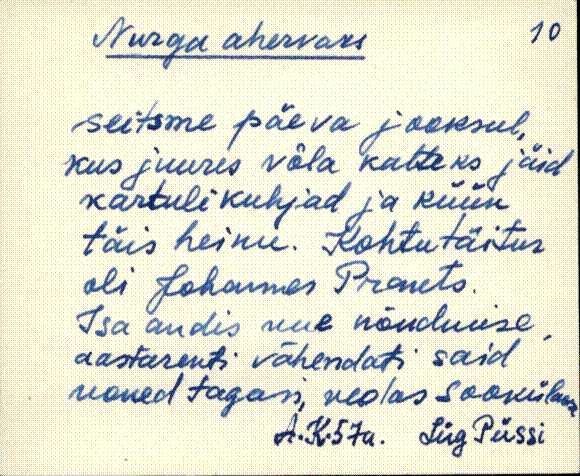 Nurga ahervars
10
seitsme päeva jooksul,
kus juures võla katteks jäid
kartulikuhjad ja küün
täis heinu. Kohtutäitur
oli Johannes Pranets.
Isa andis uue nõudmise,
aastarenti vähendati said
uoned tagasi, Sookülana
A.K.57a. Lüg Püssi